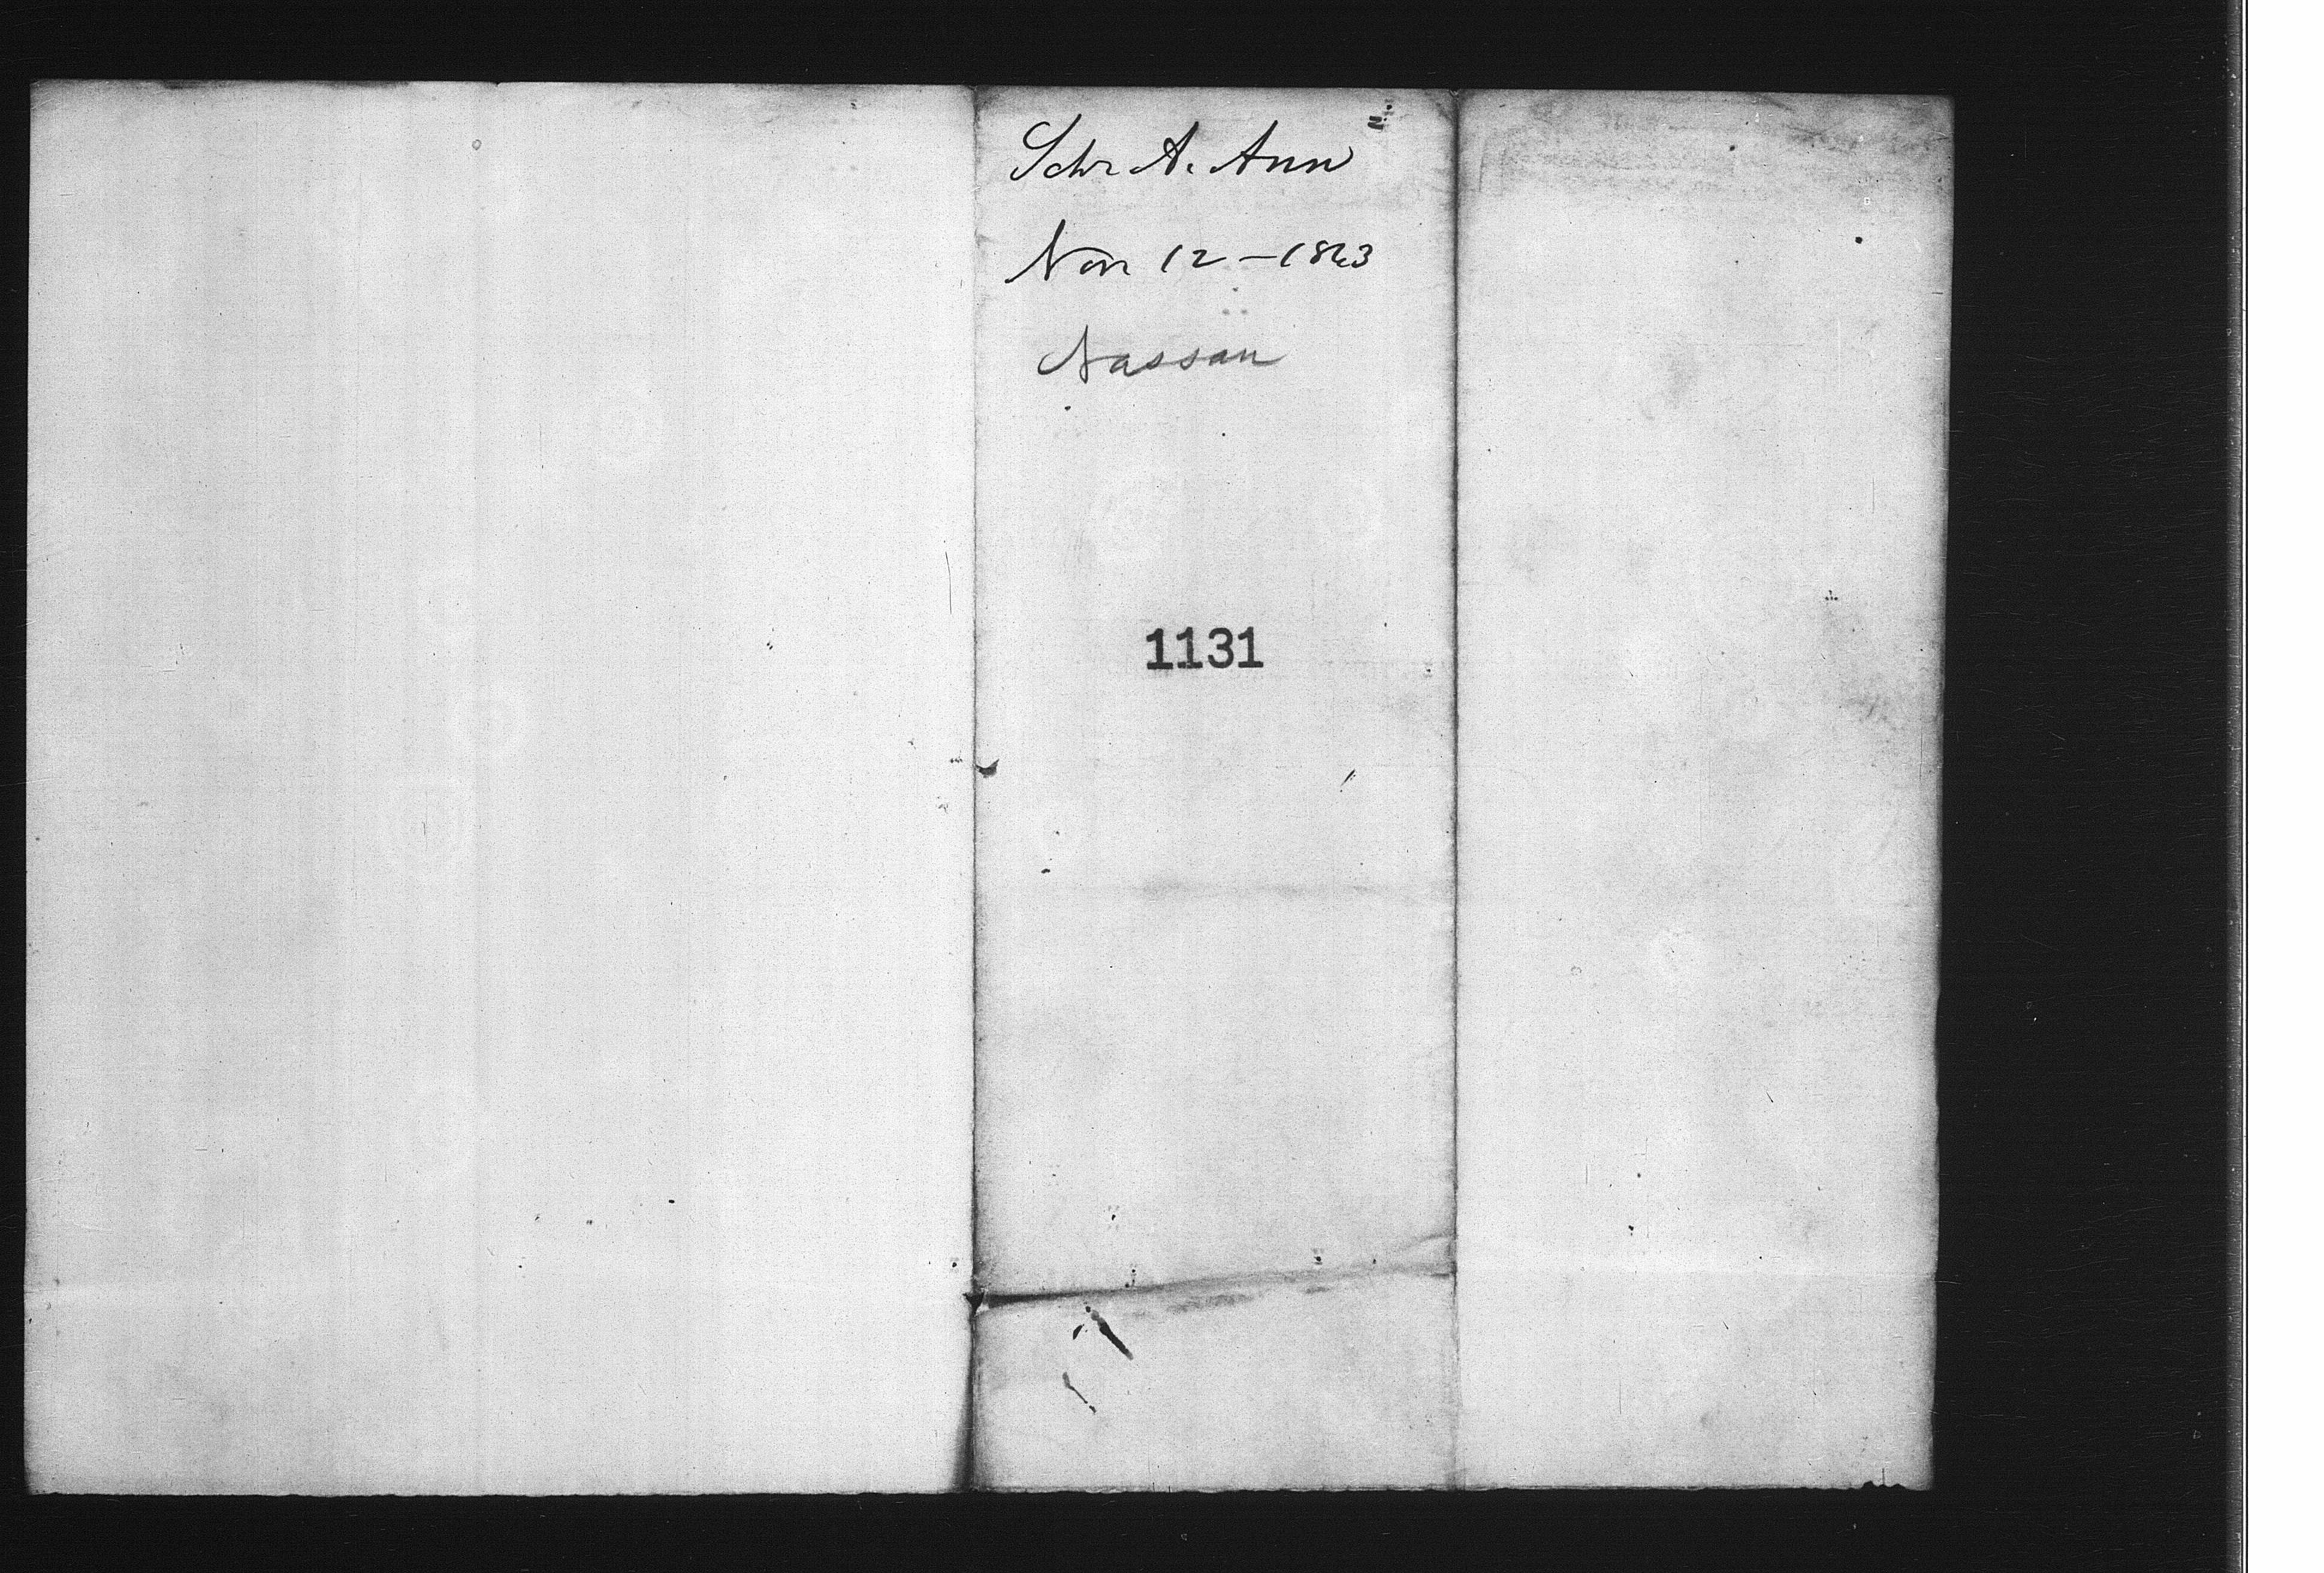 Schr A. Ann
Nov 12 - 1863
Nassau
1131